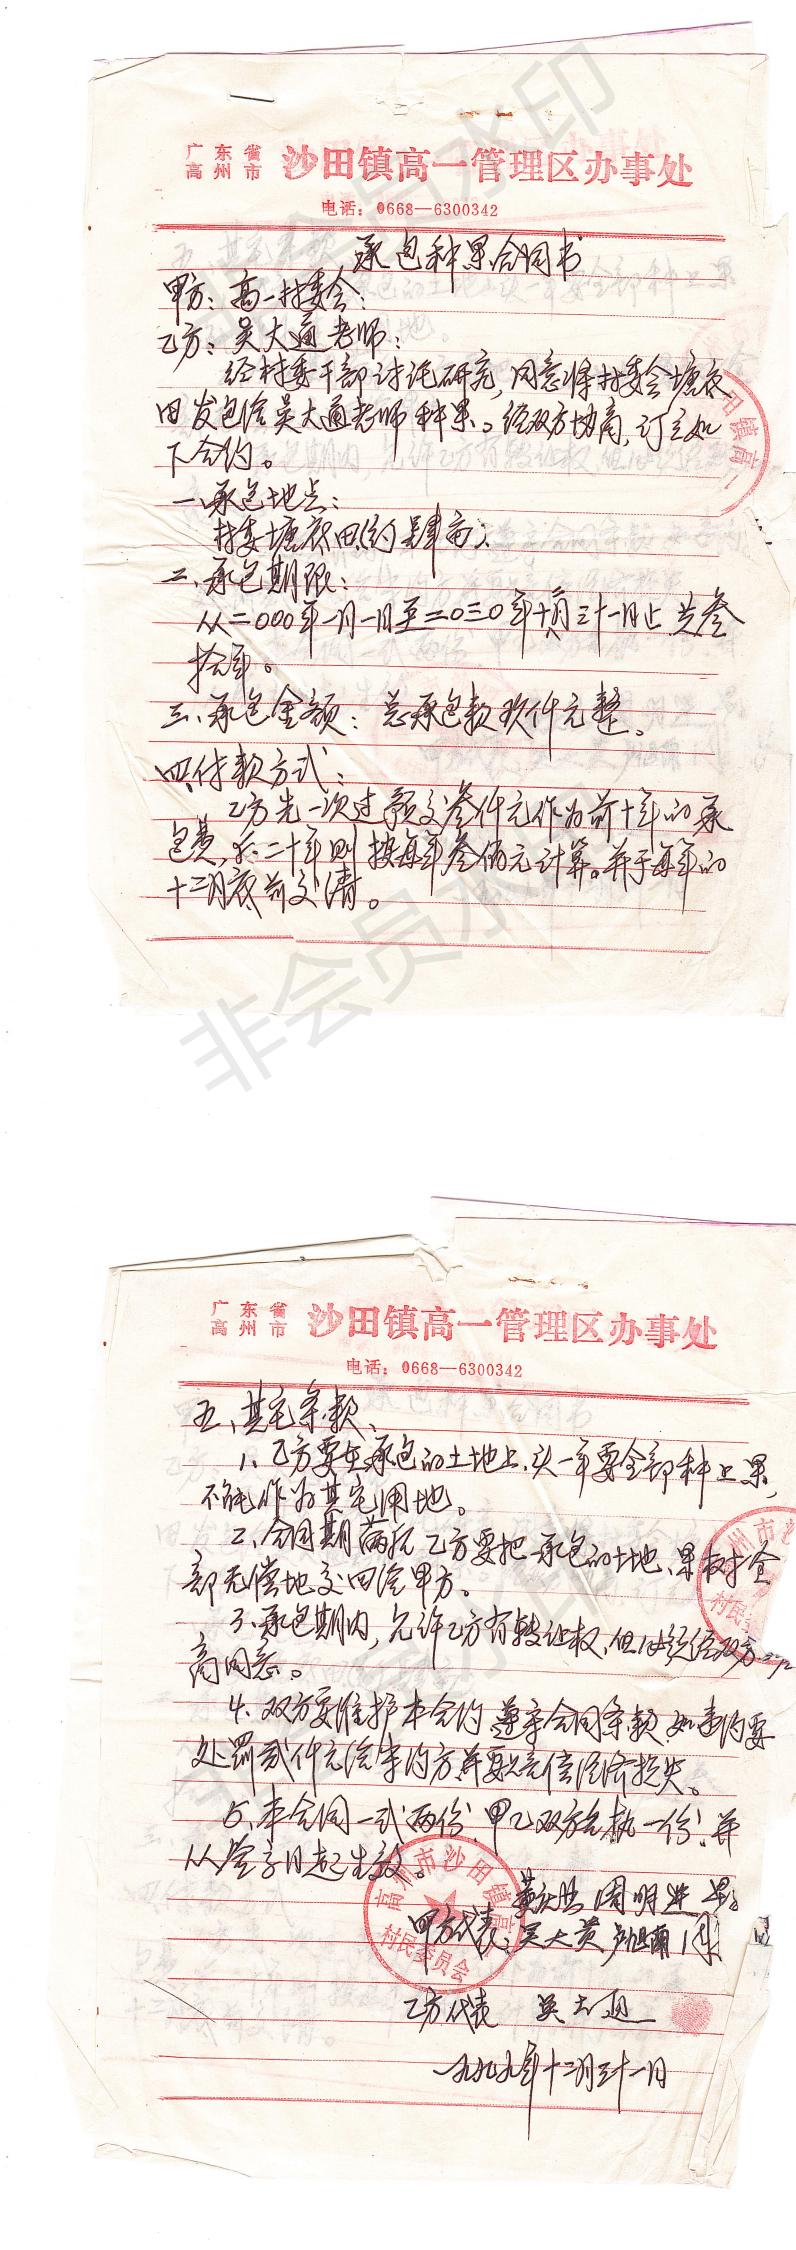 广东省
高州市
沙田镇高一管理区办事处
电话：0668—6300342
承包种果合同书
甲方：高一村委会：
乙方：吴大通老师：
经村委干部讨论研究，同意将村委会塘底
田发包给吴大通老师种果。经双方协商，订立如
下合约。
一、承包地点：
村委塘底田(约肆亩)。
二、承包期限：
从二000年一月一日至二0三0年十二月三十一日止，共叁
拾年。
三、承包金额：总承包款玖仟元整。
四、付款方式：
乙方先一次过预交叁仟元作为前十年的承
包费，后二十年则按每年叁佰元计算。并于每年的
十二月底前交清。
田镇高一
非会员水印
非会员水印
广东省
高州市
沙田镇高一管理区办事处
电话：0668—6300342
五、其它条款、
1、乙方要在承包的土地上，头一年要全部种上果，
不能作为其它用地。
2、合同期满后乙方要把承包的土地、果树全
部无偿地交回给甲方。
3、承包期内，允许乙方有转让权，但必须经双方
商同意。
4、双方要维护本合约，遵守合同条款，如违约要
处罚贰仟元给守约方并要赔偿经济损失。
5、本合同一式两份，甲乙双方各执一份，并
从签字日起生效。
周明进
甲方代表：吴大黄
乙方代表 吴大通
一九九九年十二月三十一日
高州市沙田镇高
村民委员会
州市沙
村民委
非会员水印